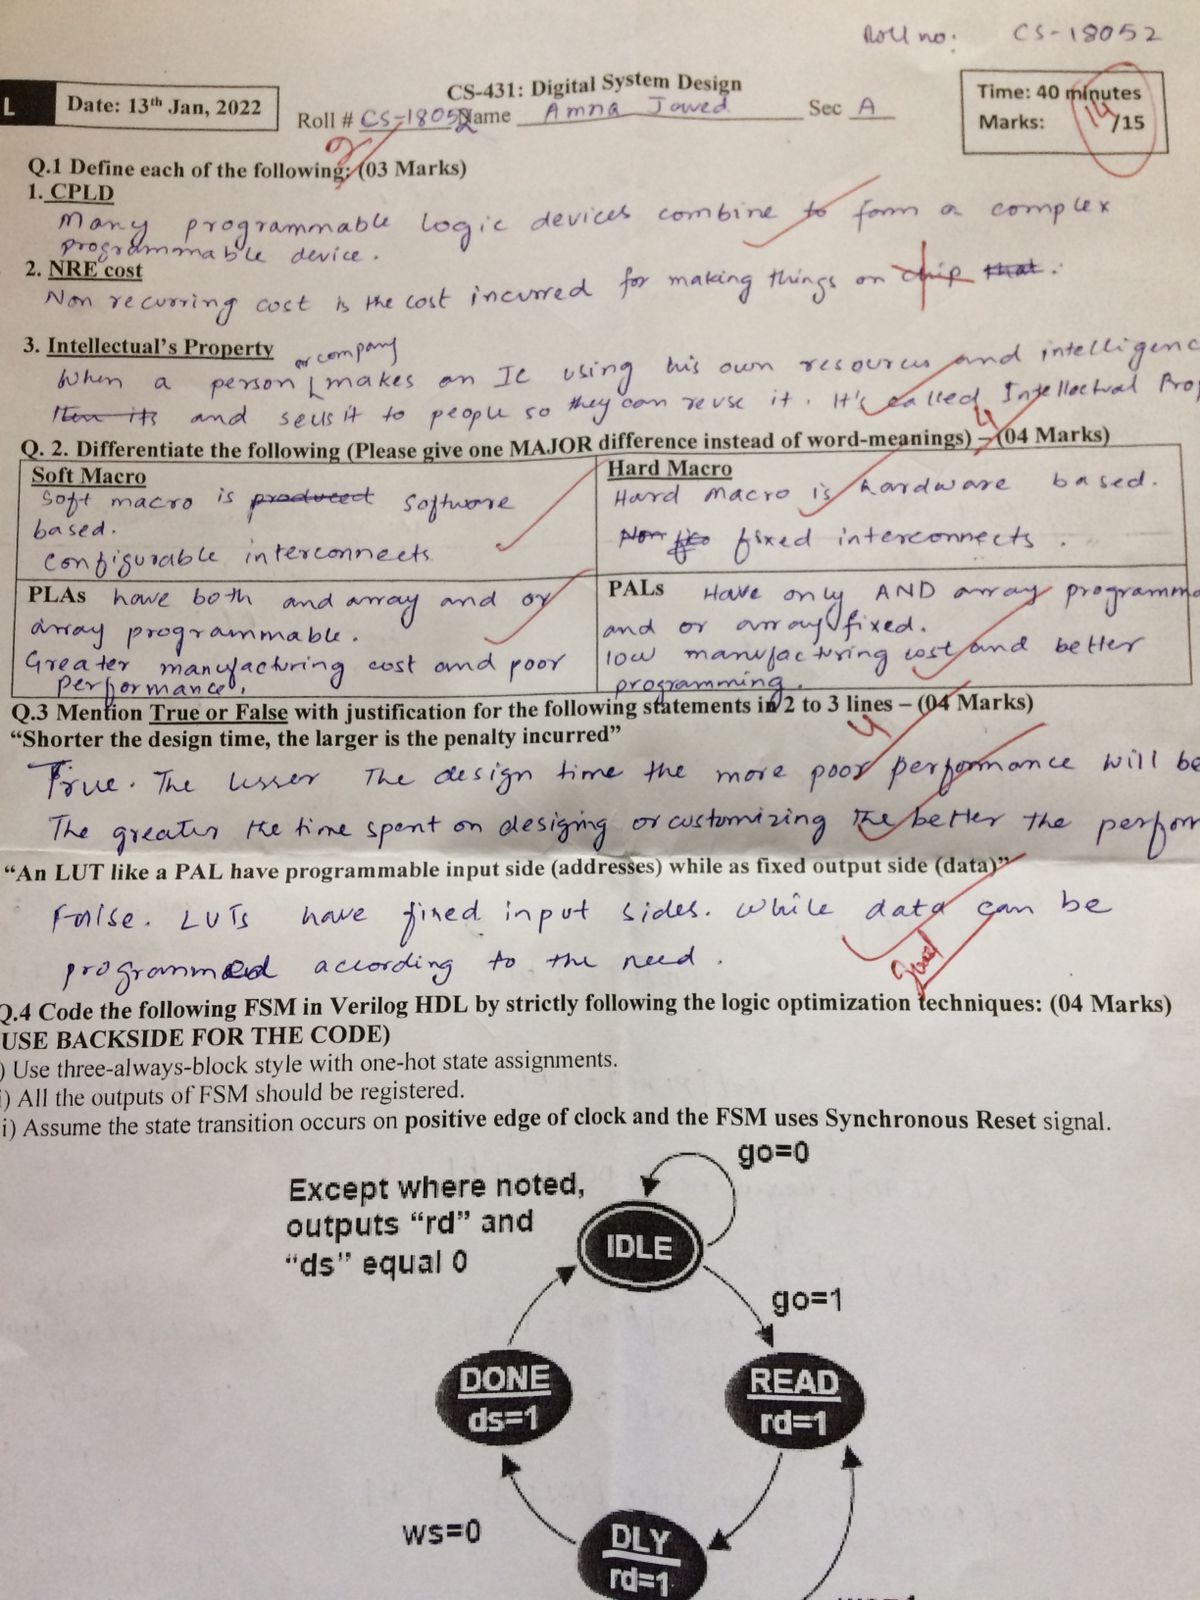 Roll no: CS-18052
CS-431: Digital System Design
L
Date: 13th Jan, 2022
Roll # CS-18052 Name Amna Jawed Sec A
Time: 40 minutes
Marks: 14/15
2
Q.1 Define each of the following: (03 Marks)
1. CPLD
Many programmable logic devices combine to form a complex
programmable device.
2. NRE cost
Non recurring cost is the cost incurred for making things on chip that.
3. Intellectual's Property
or company
When a person makes an IC using his own resources and intelligenc
and sells it to people so they can reuse it. It's called Intellectual Prop
4
Q. 2. Differentiate the following (Please give one MAJOR difference instead of word-meanings) – (04 Marks)
Soft Macro
Soft macro is produced software
based.
Configurable interconnects
Hard Macro
Hard macro is hardware based.
fixed interconnects.
PLAs have both and array and or
array programmable.
Greater manufacturing cost and poor
performance.
PALs Have only AND array programma
and or array fixed.
low manufacturing cost and better
programming.
Q.3 Mention True or False with justification for the following statements in 2 to 3 lines – (04 Marks)
4
“Shorter the design time, the larger is the penalty incurred”
True. The lesser The design time the more poor performance will be
The greater the time spent on designing or customizing the better the perform
“An LUT like a PAL have programmable input side (addresses) while as fixed output side (data)”
False. LUTs have fixed input sides. while data can be
programmed according to the need.
Good
Q.4 Code the following FSM in Verilog HDL by strictly following the logic optimization techniques: (04 Marks)
USE BACKSIDE FOR THE CODE)
) Use three-always-block style with one-hot state assignments.
i) All the outputs of FSM should be registered.
i) Assume the state transition occurs on positive edge of clock and the FSM uses Synchronous Reset signal.
go=0
Except where noted,
outputs “rd” and
“ds” equal 0
IDLE
go=1
DONE
ds=1
READ
rd=1
ws=0
DLY
rd=1